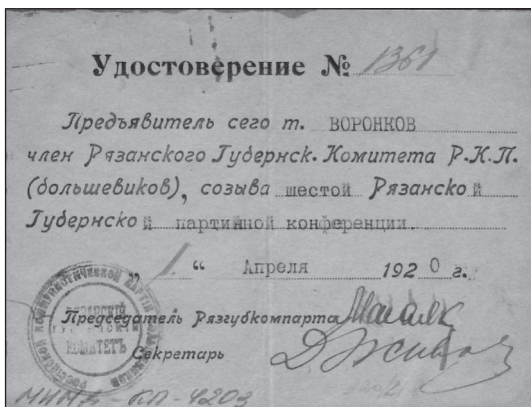 Удостоверение № 1361
Предъявитель сего т. ВОРОНКОВ
член Рязанского Губернск. Комитета Р.К.П.
(большевиков), созыва шестой Рязанской
Губернской партийной конференции.
„ 1 “ Апреля 1920 г.
Председатель Рязгубкомпарта
Секретарь
КОМИТЕТЪ
КП-4203